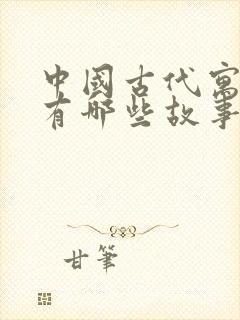 中國古代寓
有哪些故事
甘筆